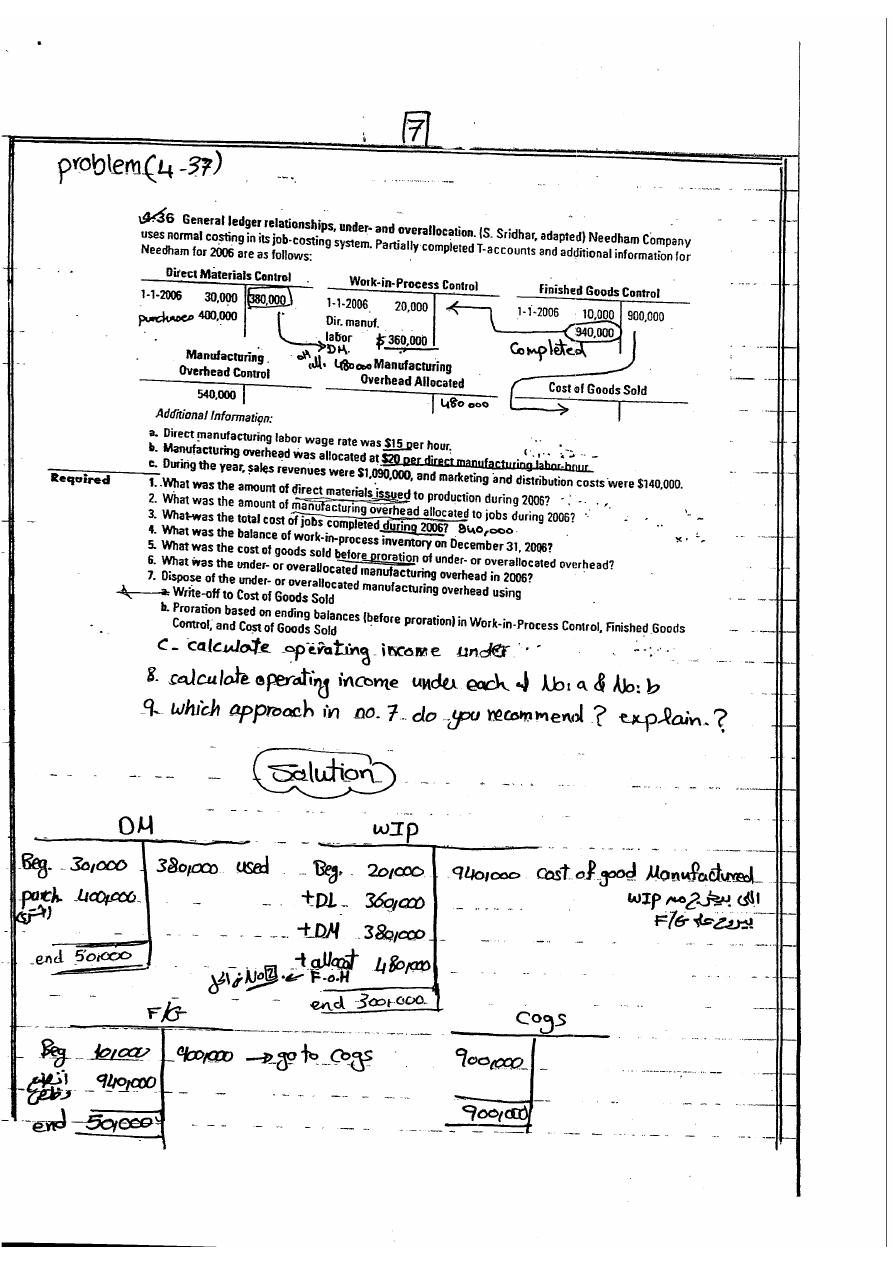 7
problem (4-37)
4-36 General ledger relationships, under- and overallocation. (S. Sridhar, adapted) Needham Company
uses normal costing in its job-costing system. Partially completed T-accounts and additional information for
Needham for 2006 are as follows:
Direct Materials Control Work-in-Process Control Finished Goods Control
1-1-2006 30,000 380,000 1-1-2006 20,000 1-1-2006 10,000 900,000
purchases 400,000 Dir. manuf. 940,000
labor $ 360,000 Completed
DM.
OH all. 480000
Manufacturing Manufacturing
Overhead Control Overhead Allocated Cost of Goods Sold
540,000 480000
Additional Information:
a. Direct manufacturing labor wage rate was $15 per hour.
b. Manufacturing overhead was allocated at $20 per direct manufacturing labor-hour.
c. During the year, sales revenues were $1,090,000, and marketing and distribution costs were $140,000.
Required
1. What was the amount of direct materials issued to production during 2006?
2. What was the amount of manufacturing overhead allocated to jobs during 2006?
3. What was the total cost of jobs completed during 2006? 940,000
4. What was the balance of work-in-process inventory on December 31, 2006?
5. What was the cost of goods sold before proration of under- or overallocated overhead?
6. What was the under- or overallocated manufacturing overhead in 2006?
7. Dispose of the under- or overallocated manufacturing overhead using
a. Write-off to Cost of Goods Sold
b. Proration based on ending balances (before proration) in Work-in-Process Control, Finished Goods
Control, and Cost of Goods Sold
C- calculate operating income under
8. calculate operating income under each of No: a & No: b
9. which approach in no. 7 do you recommend? explain.?
Solution
DM WIP
Beg. 30,000 380,000 used Beg. 20,000 940,000 cost of good Manufactured
purch. 400,000 +DL 360,000 WIP من
+DM 380,000 F/G
end 50,000 + allocat 480,000
No 2 F.O.H
end 300,000
F/G Cogs
Beg 10,000 900,000 → go to Cogs 900,000
940,000
end 50,000 900,000